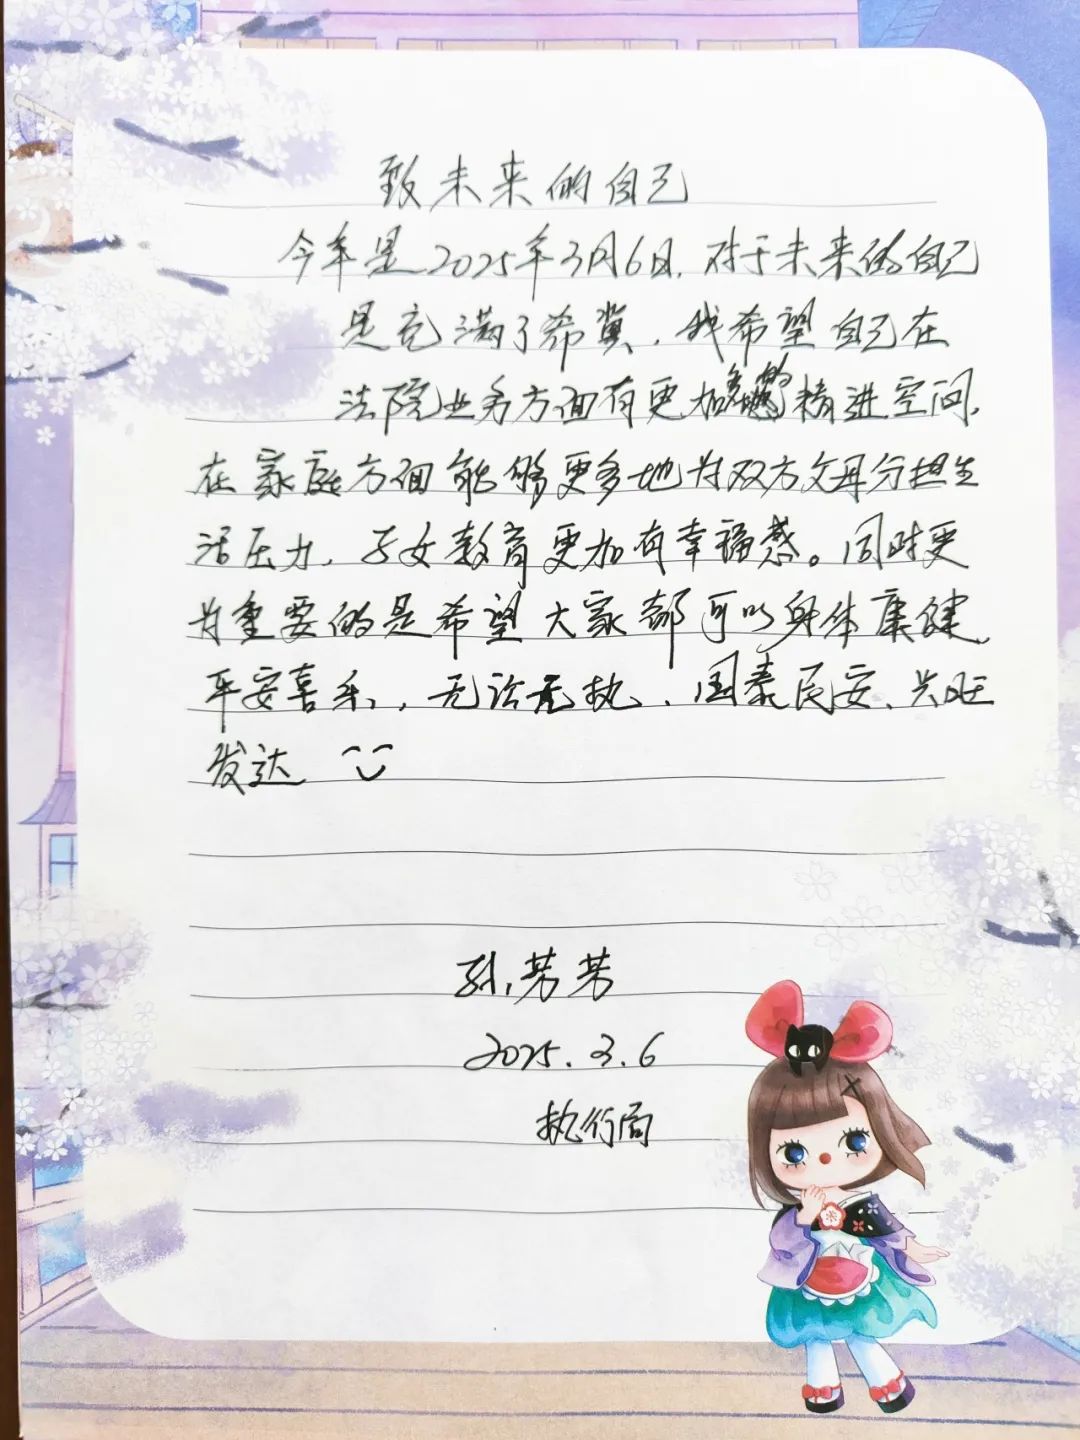 致未来的自己
今年是2025年3月6日,对于未来的自己
是充满了希冀,我希望自己在
法院业务方面有更加多的精进空间,
在家庭方面能够更多地为双方父母分担生
活压力,子女教育更加有幸福感。同时更
为重要的是希望大家都可以身体康健、
平安喜乐,无讼无执、国泰民安、兴旺
发达
孙芳芳
2025.3.6
执行局